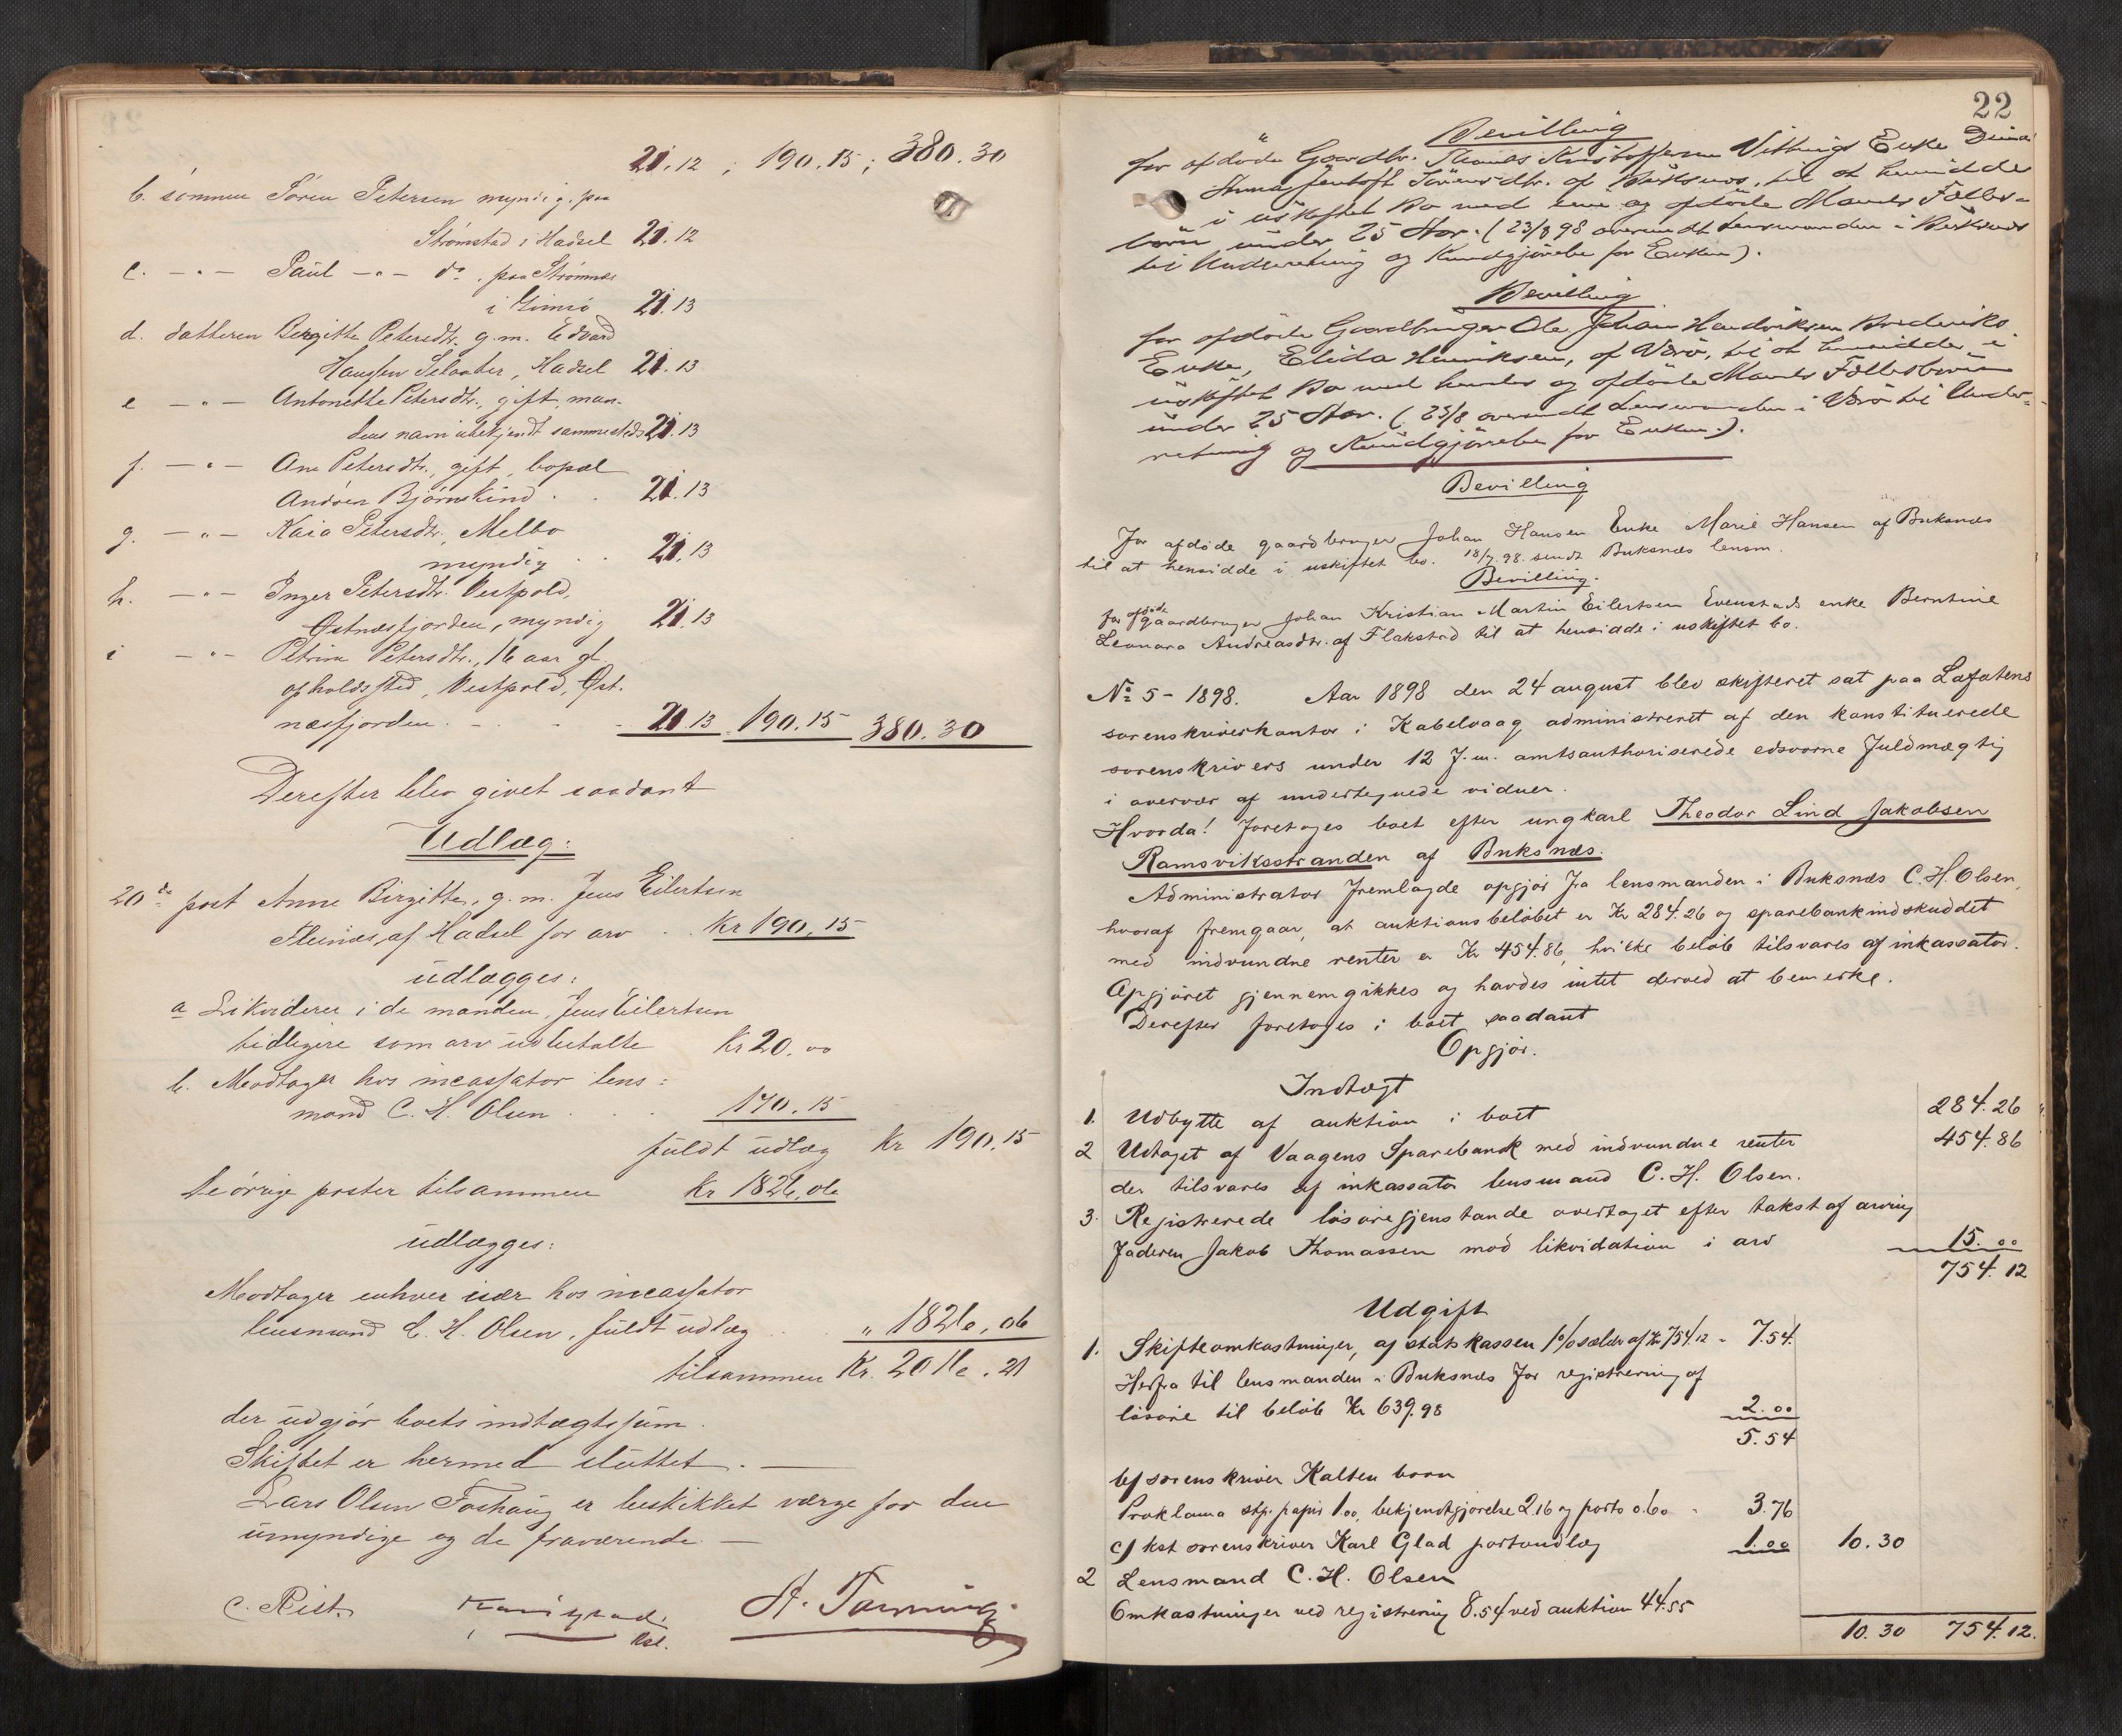 21.12 ; 190.15 ; 380.30
b. sønnen Søren Petersen myndig, paa
Strømstad i Hadsel 21.12
c. -"- Paul -"- do. paa Strømnes
i Gimsø 21.13
d. datteren Birgitte Petersdtr. g. m. Edvard
Hansen , Hadsel 21.13
e -"- Antonette Petersdtr., gift, man-
dens navn ubekjendt sammesteds 21.13
f. -"- Ane Petersdtr., gift, bopæl
Andøen Bjørnskind . . 21.13
g. -"- Kaia Petersdtr., Melbo
myndig . . 21.13
h. -"- Inger Petersdtr. Vestpold,
Østnæsfjorden, myndig 21.13
i -"- Petrine Petersdtr., 16 aar gl.
opholdssted, Vestpold, Øst-
næsfjorden . - . - 21.13 190.15 380.30
Derefter blev givet saadant
Udlæg:
20de post Anne Birgitte, g. m. Jens Eilertsen
af Hadsel for arv . . Kr 190,15
udlægges:
a Likviderer i de manden, Jens Eilertsen
tidligere som arv udbetalte Kr 20,00
b. Modtager hos incassator lens:
mand C. H. Olsen . . . 170.15
fuldt udlæg Kr 190,15
de øvrige poster tilsammen Kr 1826,06
udlægges:
Modtager enhver især hos incassator
lensmand C. H. Olsen, fuldt udlæg . . " 1826,06
tilsammen Kr. 2016.21
der udgjør boets indtægtssum.
Skiftet er hermed sluttet. —
Lars Olsen Foshaug er beskikket værge for den
umyndige og de fraværende. —
C. Rist.
22
Bevilling
for afdøde Gaardbr. Thomas Kristoffersen Enke
Anna Jentoft Sørensdtr. af Buksnæs, til at hensidde
i uskiftet Bo med sine og afdøde Mands Fælles-
børn under 25 Aar. (23/8 98 oversendt Lensmanden i Buksnæs
til Underretning og Kundgjørelse for Enken).
Bevilling
for afdøde Gaardbruger Ole Johan Hendriksen
Enke, Elida Henriksen, af Værø, til at hensidde i
uskiftet Bo med hendes og afdøde Mands Fællesbørn
under 25 Aar. (23/8 oversendt Lensmanden i Værø til Under-
retning og Kundgjørelse for Enken).
Bevilling
For afdøde gaardbruger Johan Hansen Enke Marie Hansen af Buksnæs
til at hensidde i uskiftet bo. 18/7.98. sendt Buksnæs lensm.
Bevilling.
for afdøde gaardbruger Johan Kristian Martin Eilertsen Evenstads enke Berntine
Leonara Andreasdtr. af Flakstad til at hensidde i uskiftet bo.
No 5 - 1898. Aar 1898 den 24 august blev skifteret sat paa Lofotens
sorenskriverkontor i Kabelvaag administreret af den konstituerede
sorenskrivers under 12 f.m. amtsauthoriserede edsvorne fuldmægtig
i overvær af undertegnede vidner.
Hvorda! Foretoges boet efter ungkarl Theodor Lind Jakobsen
Ramsviksstranden af Buksnæs.
Administrator fremlagde opgjør fra lensmanden i Buksnæs C. H. Olsen,
hvoraf fremgaar, at auktionsbeløbet er Kr 284.26 og sparebankindskuddet
med indvundne renter er Kr 454.86, hvilke beløb tilsvares af inkassator.
Opgjøret gjennemgikkes og havdes intet derved at bemerke.
Derefter foretoges i boet saadant
Opgjør.
Indtægt
1. Udbytte af auktion i boet 284.26
2 Udtaget af Vaagens Sparebank med indvundne renter 454.86
der tilsvares af inkassator lensmand C. H. Olsen.
3. Registrerede løsøregjenstande overtaget efter takst af arving
faderen Jakob Thomassen mod likvidation i arv 15.00
754.12
Udgift
1. Skifteomkostninger, a) statskassen 1% af Kr 754.12 - 7.54.
Herfra til lensmanden i Buksnæs for registrering af
løsøre til beløb Kr 639.98 2.00
5.54
b) sorenskriver Kaltenborn
Proklama stp. papir 1.00, bekjendtgjørelse 2.16 og porto 0.60 - 3.76
c) kst sorenskriver Karl Glad portoudlæg 1.00 10.30
2 Lensmand C. H. Olsen
Omkostninger ved registrering 8.54 ved auktion 44.55
10.30 754.12.